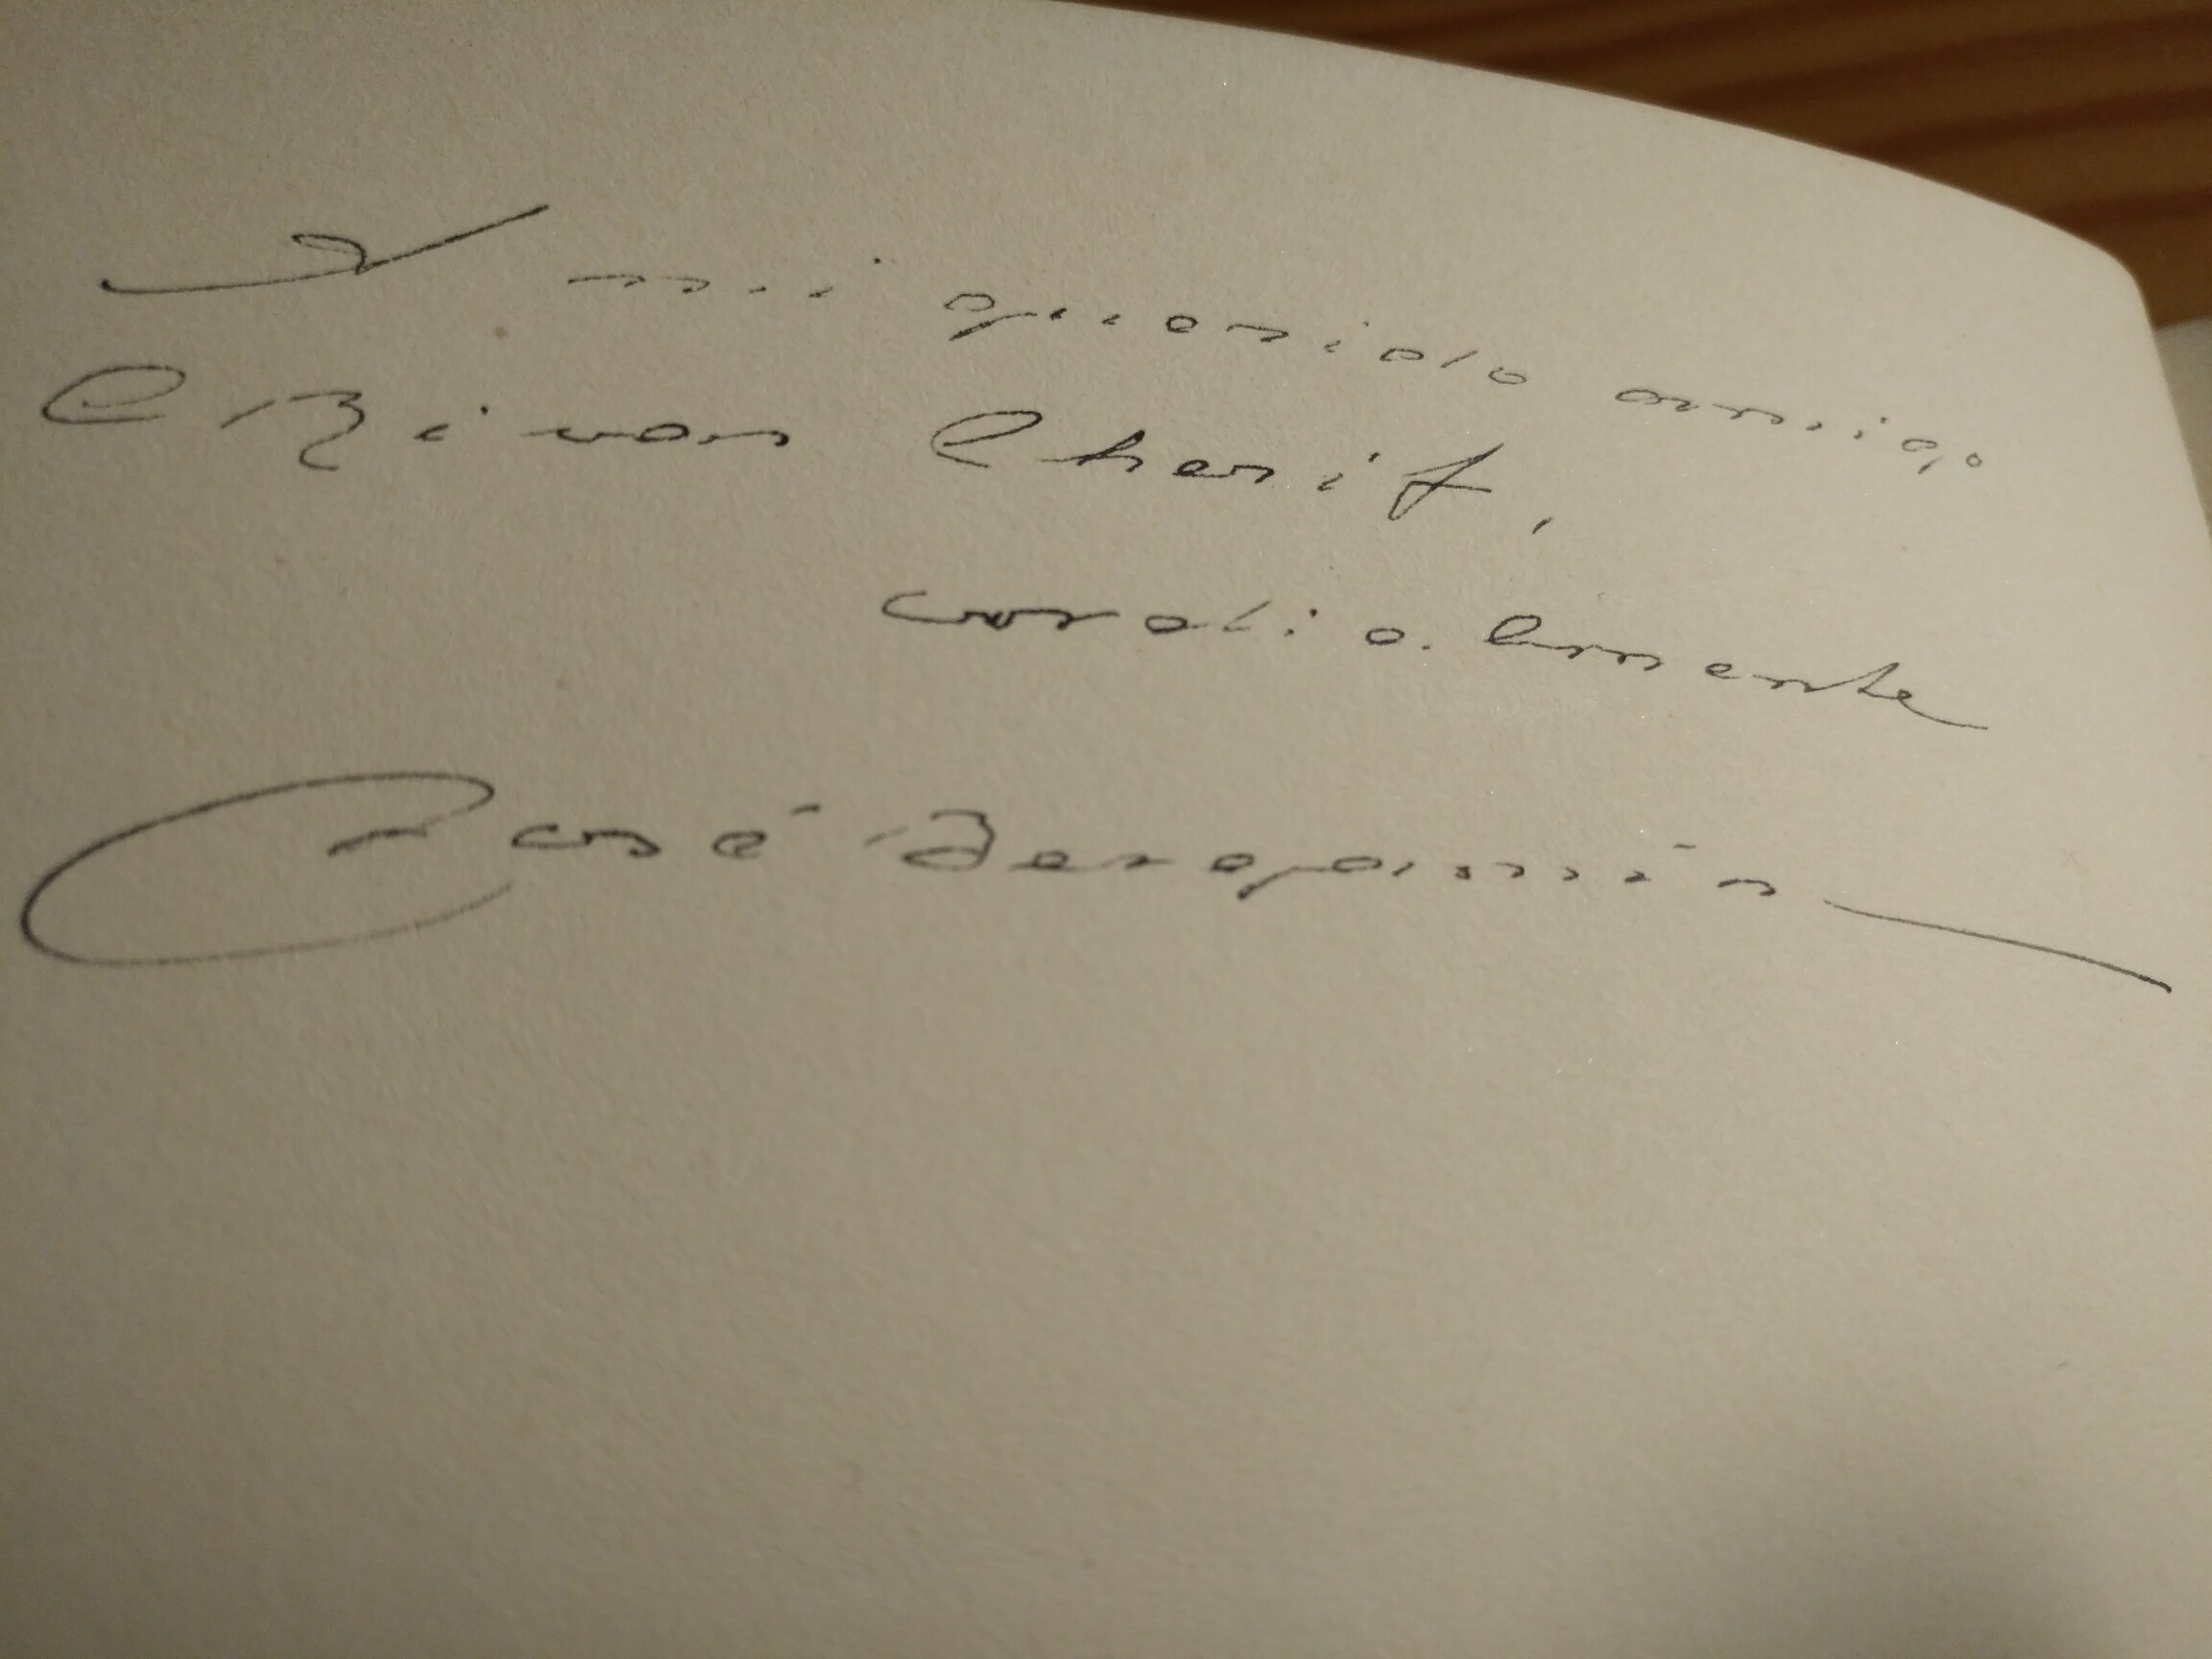 A mi querido amigo
C. Rivas Cherif,
cordialmente
José Bergamín